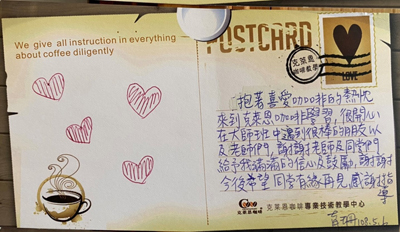 We give all instruction in everything
about coffee diligently
POSTCARD
克萊恩
咖啡教學
LOVE
抱著喜愛咖啡的熱忱
來到克萊恩咖啡學習,很開心
在大師班中遇到很棒的朋友以
及老師們,謝謝老師及同學們
給予我滿滿的信心及鼓勵,謝謝
今後希望同學有緣再見,感謝指
導
克萊恩咖啡
克萊恩咖啡專業技術教學中心
108.5.6